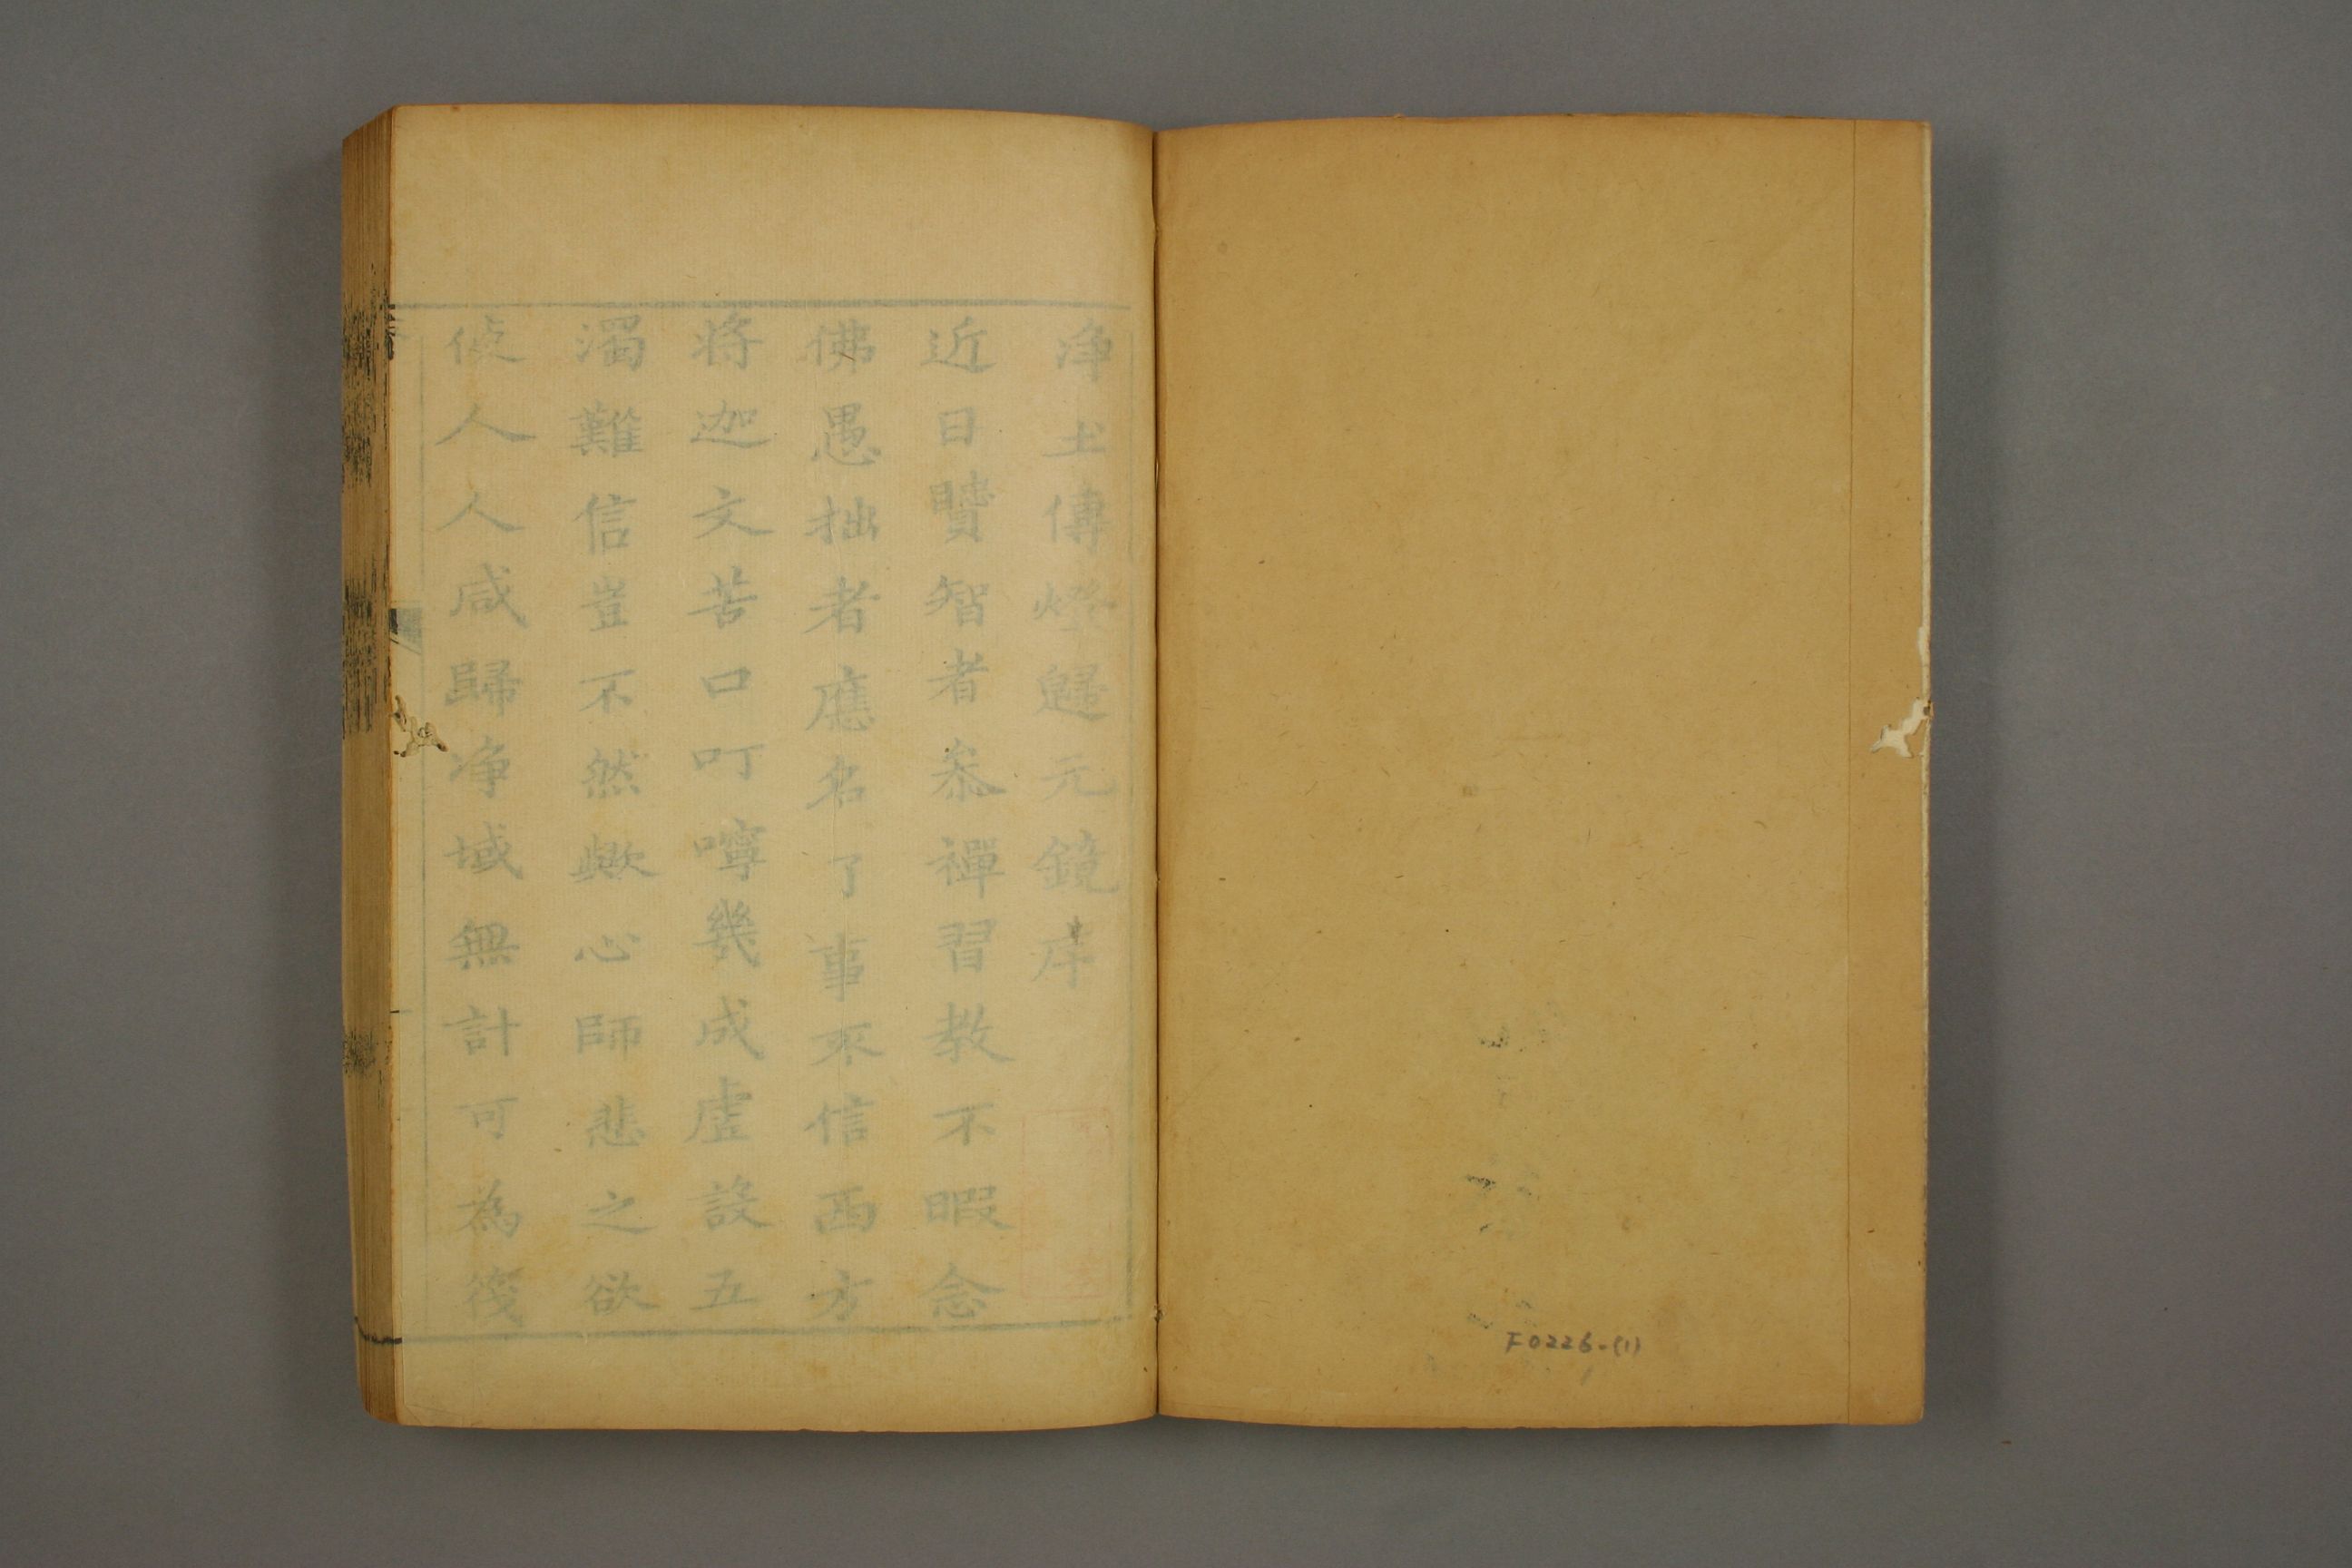 淨土傳燈歸元鏡序
近日聵智者叅禪習教不暇念
佛愚拙者應名了事不信西方
將迦文苦口叮嚀幾成虛設五
濁難信豈不然歟心師悲之欲
使人人咸歸淨域無計可為筏
F0226-(1)